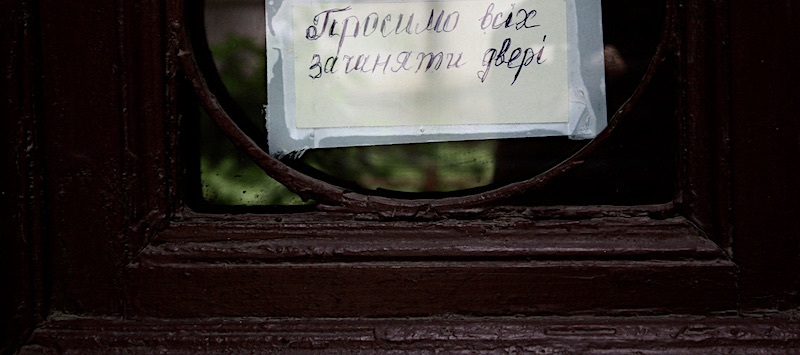 Просимо всіх
зачиняти двері